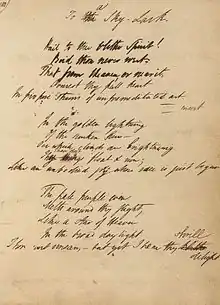 To a Sky-Lark
Hail to thee blithe Spirit!
Bird thou never wert
That from Heaven, or near it,
Pourest thy full heart
In profuse strains of unpremeditated art
In the golden lightning
Of the sunken Sun—
O'er which clouds are brightning
float & run;
Like an unbodied joy whose race is just begun
The pale purple even
Melts around thy flight,
Like a star of Heaven
In the broad daylight
Thou art unseen,— but yet I hear thy shrill
delight